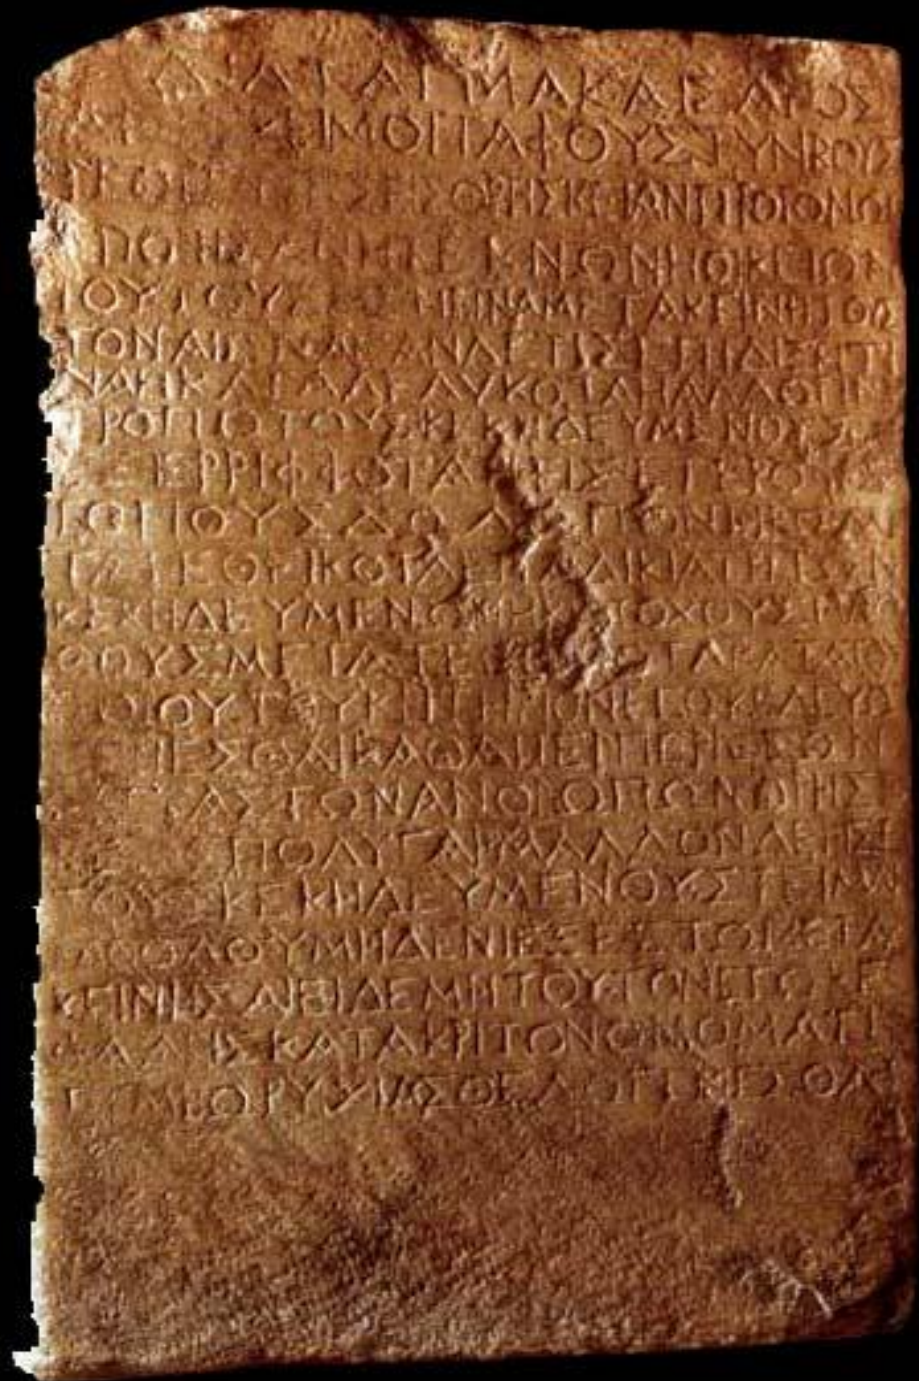 ΔΙΑΤΑΓΜΑ ΚΑΙΣΑΡΟΣ
ΜΟΙ ΤΑΦΟΥΣ ΤΥΝΒΟΥΣ
ΘΡΗΣΚΕΙΑΝ
ΤΕΚΝΩΝ Η ΟΙΚΕΙΩΝ
ΤΟΥΤΟΥΣ ΑΜΕΤΑΚΕΙΝΗΤΟ
ΤΟΝ ΑΙΩΝΑ ΕΑΝ ΔΕ ΤΙΣ ΕΠΙΔΙΞΗ ΤΙ
ΝΑ Η ΚΑΤΑΛΕΛΥΚΟΤΑ Η ΑΛΛΩ ΤΙΝΙ
ΤΡΟΠΩ ΤΟΥΣ ΚΕΚΗΔΕΥΜΕΝΟΥΣ
ΕΡΡΙΦΦΟΤΑ Η ΕΙΣ ΕΤΕΡΟΥΣ
ΤΟΠΟΥΣ ΔΩΛΩ ΠΟΝΗΡΩ ΜΕ
ΤΑΤΕΘΕΙΚΟΤΑ ΕΠ ΑΔΙΚΙΑ ΤΗ ΤΩΝ
ΚΕΚΗΔΕΥΜΕΝΩΝ Η ΚΑΤΟΧΟΥΣ Η ΛΙ
ΘΟΥΣ ΜΕΤΑΤΕΘΕΙΚΟΤΑ ΚΑΤΑ ΤΟΥ
ΤΟΙΟΥΤΟΥ ΚΡΙΤΗΡΙΟΝ ΕΓΩ ΚΕΛΕΥΩ
ΝΕΣΘΑΙ ΚΑΘΑΠΕΡ ΠΕΡΙ ΘΕΩΝ
ΤΑΣ ΤΩΝ ΑΝΘΡΟΠΩΝ ΘΡΗΣ
ΠΟΛΥ ΓΑΡ ΜΑΛΛΟΝ ΔΕΗΣΕΙ
ΤΟΥΣ ΚΕΚΗΔΕΥΜΕΝΟΥΣ ΤΕΙΜΑΝ
ΚΑΘΟΛΟΥ ΜΗΔΕΝΙ ΕΞΕΣΤΩ ΜΕΤΑ
ΚΕΙΝΗΣΑΙ ΕΙ ΔΕ ΜΗ ΤΟΥΤΟΝ ΕΓΩ ΚΕ
ΦΑΛΗΣ ΚΑΤΑΚΡΙΤΟΝ ΟΝΟΜΑΤΙ
ΤΥΜΒΩΡΥΧΙΑΣ ΘΕΛΩ ΓΕΝΕΣΘΑΙ